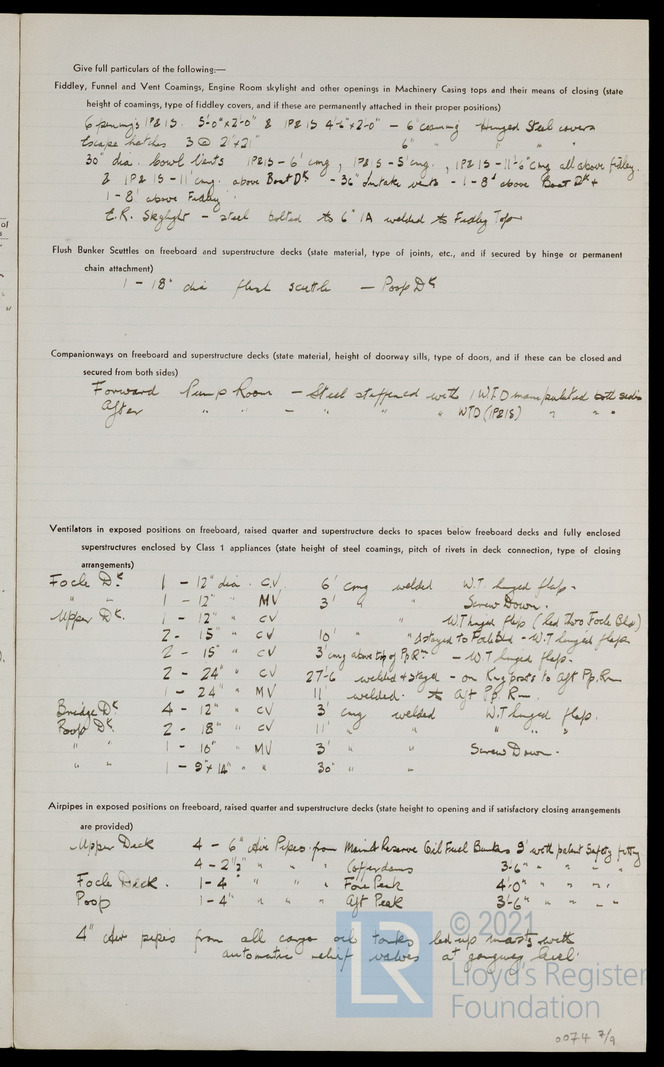 Give full particulars of the following:—
Fiddley, Funnel and Vent Coamings, Engine Room skylight and other openings in Machinery Casing tops and their means of closing (state
height of coamings, type of fiddley covers, and if these are permanently attached in their proper positions)
6 openings 1P&1S. 5'-0"x2'-0" & 1P&1S 4'-6"x2'-0" — 6" coaming Hinged Steel covers
Escape hatches 3 @ 2'x2' 6" " " "
30" dia. bowl Vents 1P&1S - 6' cmg, 1P&1S - 5' cmg, 1P&1S - 11'-6" cmg all above fidley.
2 1P&1S - 11' cmg. above Boat Dk - 36" Intake vents - 1 - 8' above Boat Dk +
1 - 8' above Fidley
E.R. Skylight - steel bolted to 6" IA welded to Fidley Top
Flush Bunker Scuttles on freeboard and superstructure decks (state material, type of joints, etc., and if secured by hinge or permanent
chain attachment)
1 - 18" dia flush scuttle — Poop Dk
Companionways on freeboard and superstructure decks (state material, height of doorway sills, type of doors, and if these can be closed and
secured from both sides)
Forward Pump Room — Steel stiffened with 1 WTD manipulated both sides
After " " — " " " WTD (1P&1S) " " "
Ventilators in exposed positions on freeboard, raised quarter and superstructure decks to spaces below freeboard decks and fully enclosed
superstructures enclosed by Class 1 appliances (state height of steel coamings, pitch of rivets in deck connection, type of closing
arrangements)
Focle Dk 1 - 12" dia. CV 6' cmg welded W.T. hinged flap.
" " 1 - 12" " MV 3' " " Screw Down.
Upper Dk. 1 - 12" " CV " WT hinged flap (led thro Focle Bhd)
2 - 15" " CV 10' " & stayed to Focle Bhd - W.T. hinged flaps
2 - 15" " CV 3' cmg above top of Pp Rm — W.T. hinged flaps.
2 - 24" " CV 27'-6 welded & stayed - on Kingposts to Aft Pp. Rm
1 - 24" " MV 11' welded. to Aft Pp. Rm
Bridge Dk 4 - 12" " CV 3' cmg welded W.T hinged flap.
Poop Dk 2 - 18" " CV 11' " " " " "
" " 1 - 10" " MV 3' " " Screw Down.
" " 1 - 9"x14" " " 30" " "
Airpipes in exposed positions on freeboard, raised quarter and superstructure decks (state height to opening and if satisfactory closing arrangements
are provided)
Upper Deck 4 - 6" Air Pipes from Main & Reserve Oil Fuel Bunkers 3' with patent Safety fitting
4 - 2½" " " " Cofferdams 3'-6" " " " "
Focle Deck. 1 - 4" " " " Fore Peak 4'-0" " " " "
Poop 1 - 4" " " " Aft Peak 3'-6" " " " "
4" Air pipes from all cargo oil tanks led up masts with
automatic relief valves at gangway level.
LR
© 2021
Lloyd's Register
Foundation
0074 7/9